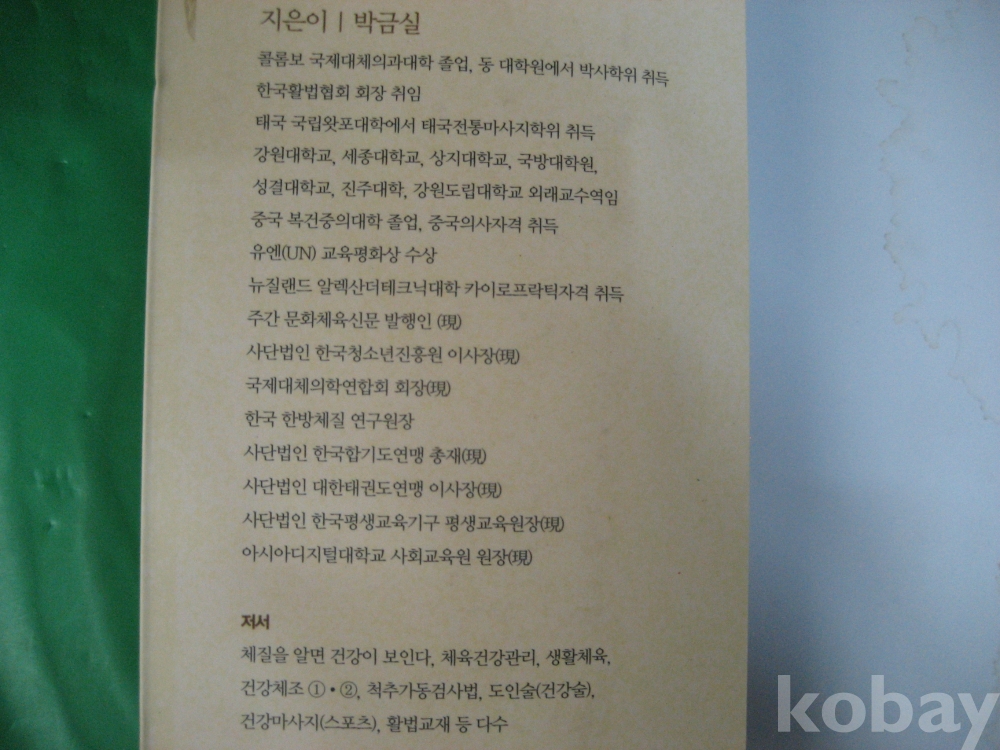 지은이 | 박금실
콜롬보 국제대체의과대학 졸업, 동 대학원에서 박사학위 취득
한국활법협회 회장 취임
태국 국립왓포대학에서 태국전통마사지학위 취득
강원대학교, 세종대학교, 상지대학교, 국방대학원,
성결대학교, 진주대학, 강원도립대학교 외래교수역임
중국 복건중의대학 졸업, 중국의사자격 취득
유엔(UN) 교육평화상 수상
뉴질랜드 알렉산더테크닉대학 카이로프락틱자격 취득
주간 문화체육신문 발행인 (現)
사단법인 한국청소년진흥원 이사장(現)
국제대체의학연합회 회장(現)
한국 한방체질 연구원장
사단법인 한국합기도연맹 총재(現)
사단법인 대한태권도연맹 이사장(現)
사단법인 한국평생교육기구 평생교육원장(現)
아시아디지털대학교 사회교육원 원장(現)
저서
체질을 알면 건강이 보인다, 체육건강관리, 생활체육,
건강체조 ①・②, 척추가동검사법, 도인술(건강술),
건강마사지(스포츠), 활법교재 등 다수
kobay